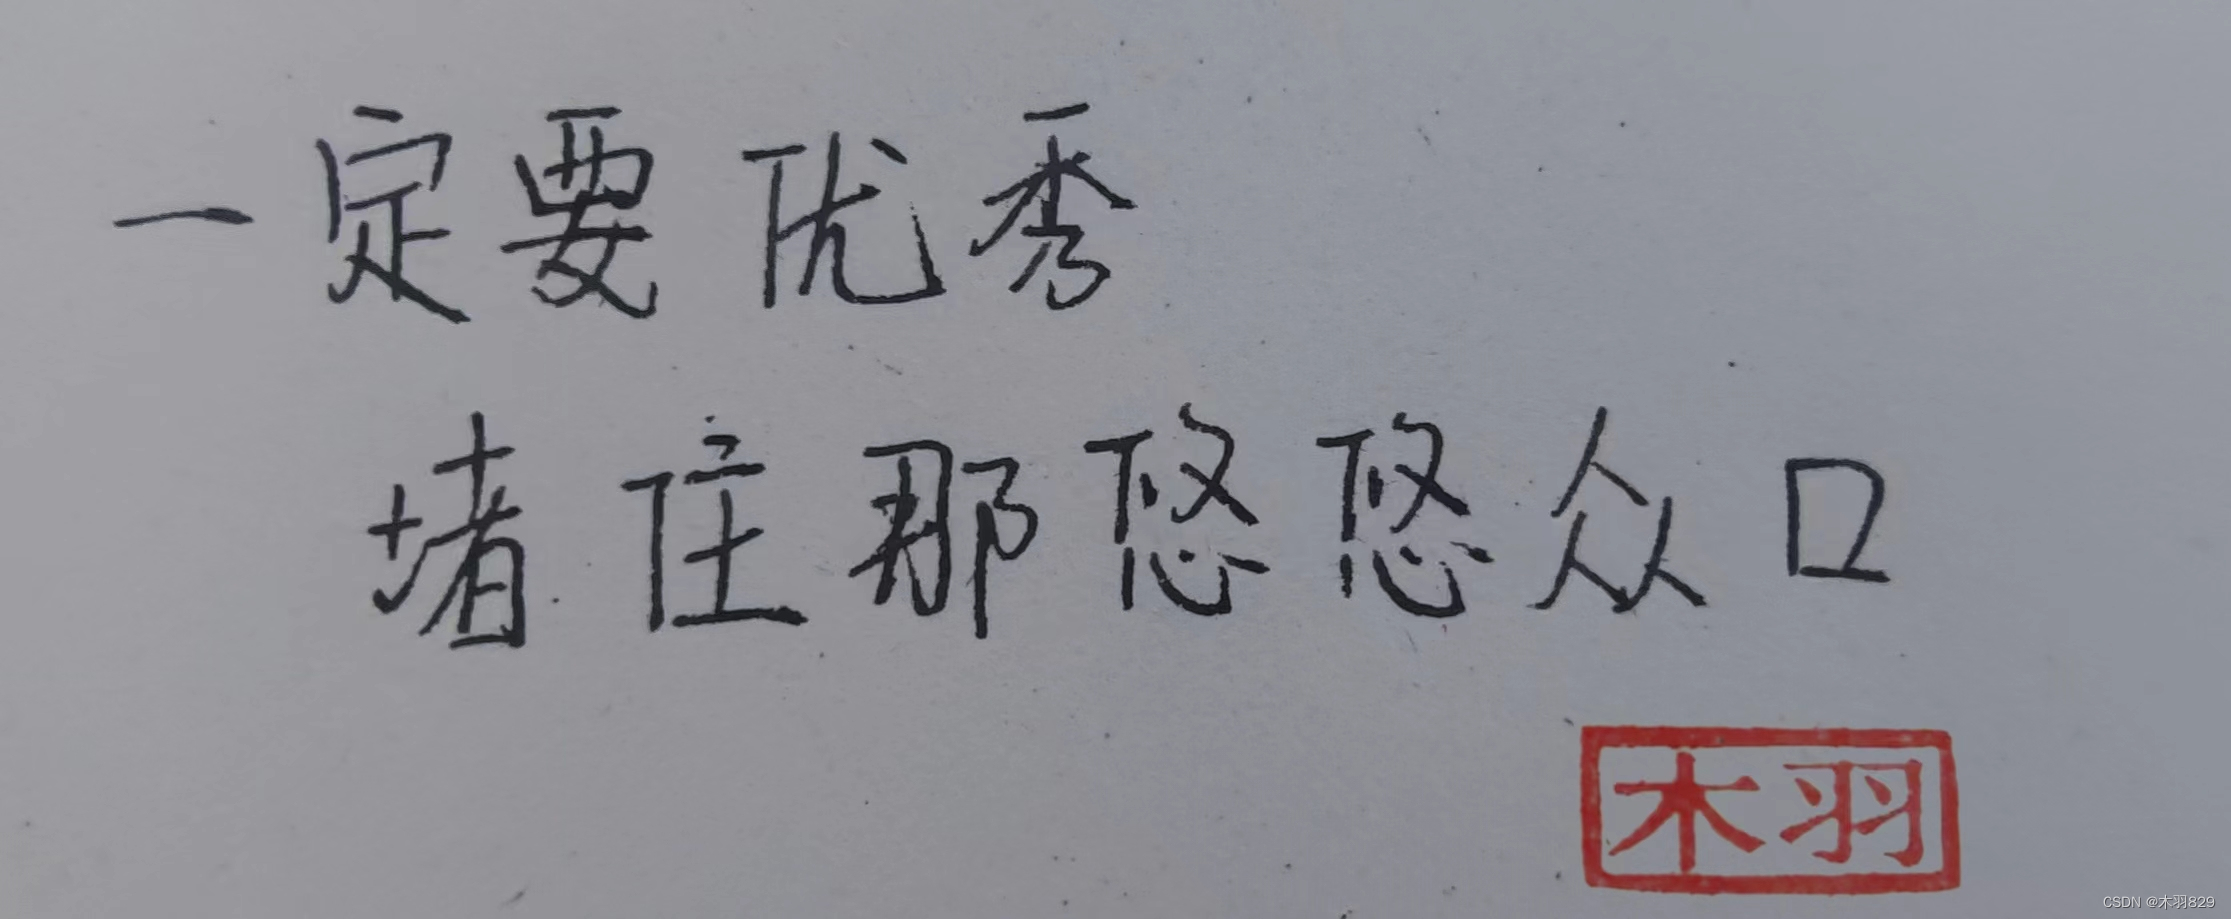 一定要优秀
堵住那悠悠众口
木羽
CSDN @木羽829